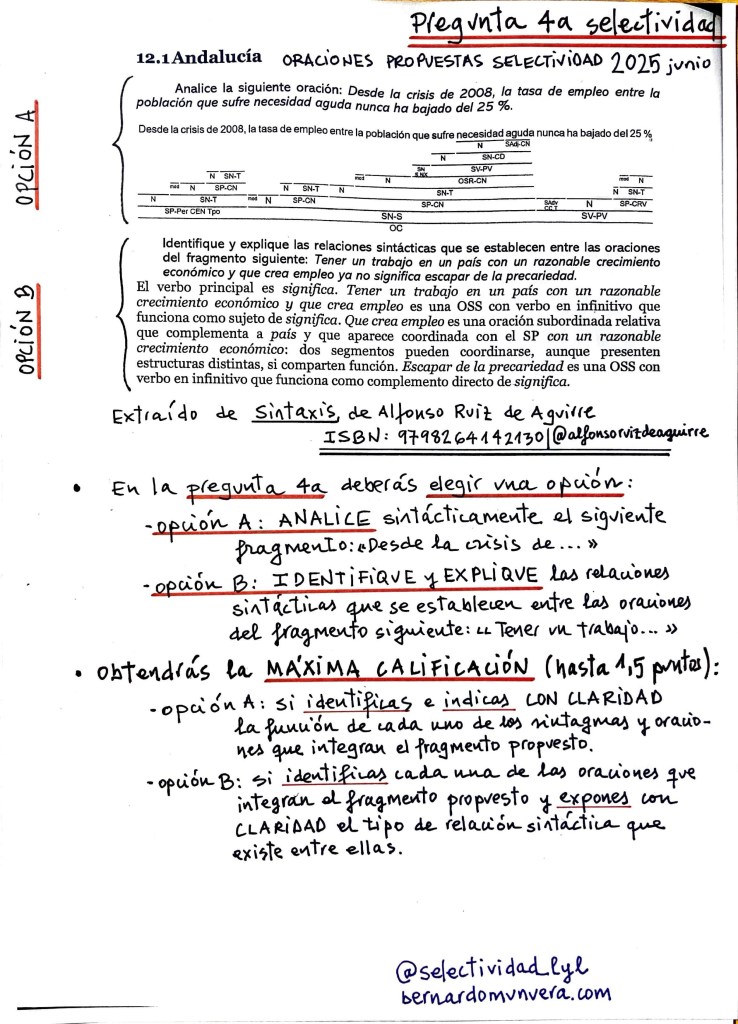 Pregunta 4a selectividad
12.1 Andalucía ORACIONES PROPUESTAS SELECTIVIDAD 2025 junio
OPCIÓN A
Analice la siguiente oración: Desde la crisis de 2008, la tasa de empleo entre la
población que sufre necesidad aguda nunca ha bajado del 25 %.
Desde la crisis de 2008, la tasa de empleo entre la población que sufre necesidad aguda nunca ha bajado del 25 %
N SAdj-CN
N SN-CD
SN SV-PV
N SN-T mod N OSR-CN mod N
mod N SP-CN N SN-T N SN-T N SN-T
N SN-T mod N SP-CN SP-CN SAdv N SP-CRV
SP-Per CEN Tpo SN-S CC T SV-PV
OC
OPCIÓN B
Identifique y explique las relaciones sintácticas que se establecen entre las oraciones
del fragmento siguiente: Tener un trabajo en un país con un razonable crecimiento
económico y que crea empleo ya no significa escapar de la precariedad.
El verbo principal es significa. Tener un trabajo en un país con un razonable
crecimiento económico y que crea empleo es una OSS con verbo en infinitivo que
funciona como sujeto de significa. Que crea empleo es una oración subordinada relativa
que complementa a país y que aparece coordinada con el SP con un razonable
crecimiento económico: dos segmentos pueden coordinarse, aunque presenten
estructuras distintas, si comparten función. Escapar de la precariedad es una OSS con
verbo en infinitivo que funciona como complemento directo de significa.
Extraído de Sintaxis, de Alfonso Ruiz de Aguirre
ISBN: 9798264142130 | @alfonsoruizdeaguirre
• En la pregunta 4a deberás elegir una opción:
- opción A: ANALICE sintácticamente el siguiente
fragmento: «Desde la crisis de ... »
- opción B: IDENTIFIQUE y EXPLIQUE las relaciones
sintácticas que se establecen entre las oraciones
del fragmento siguiente: «Tener un trabajo... »
• Obtendrás la MÁXIMA CALIFICACIÓN (hasta 1,5 puntos):
- opción A: si identificas e indicas CON CLARIDAD
la función de cada uno de los sintagmas y oracio-
nes que integran el fragmento propuesto.
- opción B: si identificas cada una de las oraciones que
integran el fragmento propuesto y expones con
CLARIDAD el tipo de relación sintáctica que
existe entre ellas.
@selectividad_lyl
bernardomunuera.com